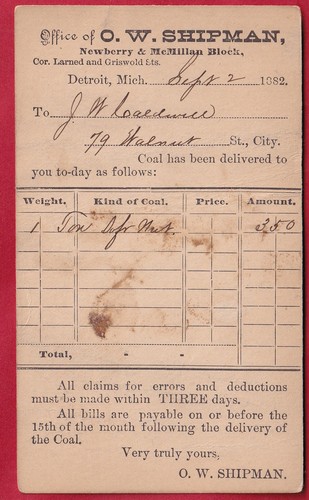 Office of O. W. SHIPMAN,
Newberry & McMillan Block,
Cor. Larned and Griswold Sts.
Detroit, Mich. Sept 2 1882.
To J W Caldwell
79 Walnut St., City.
Coal has been delivered to
you to-day as follows:
Weight. Kind of Coal. Price. Amount.
1 Ton Nut. 350
Total, - -
All claims for errors and deductions
must be made within THREE days.
All bills are payable on or before the
15th of the month following the delivery of
the Coal.
Very truly yours,
O. W. SHIPMAN.